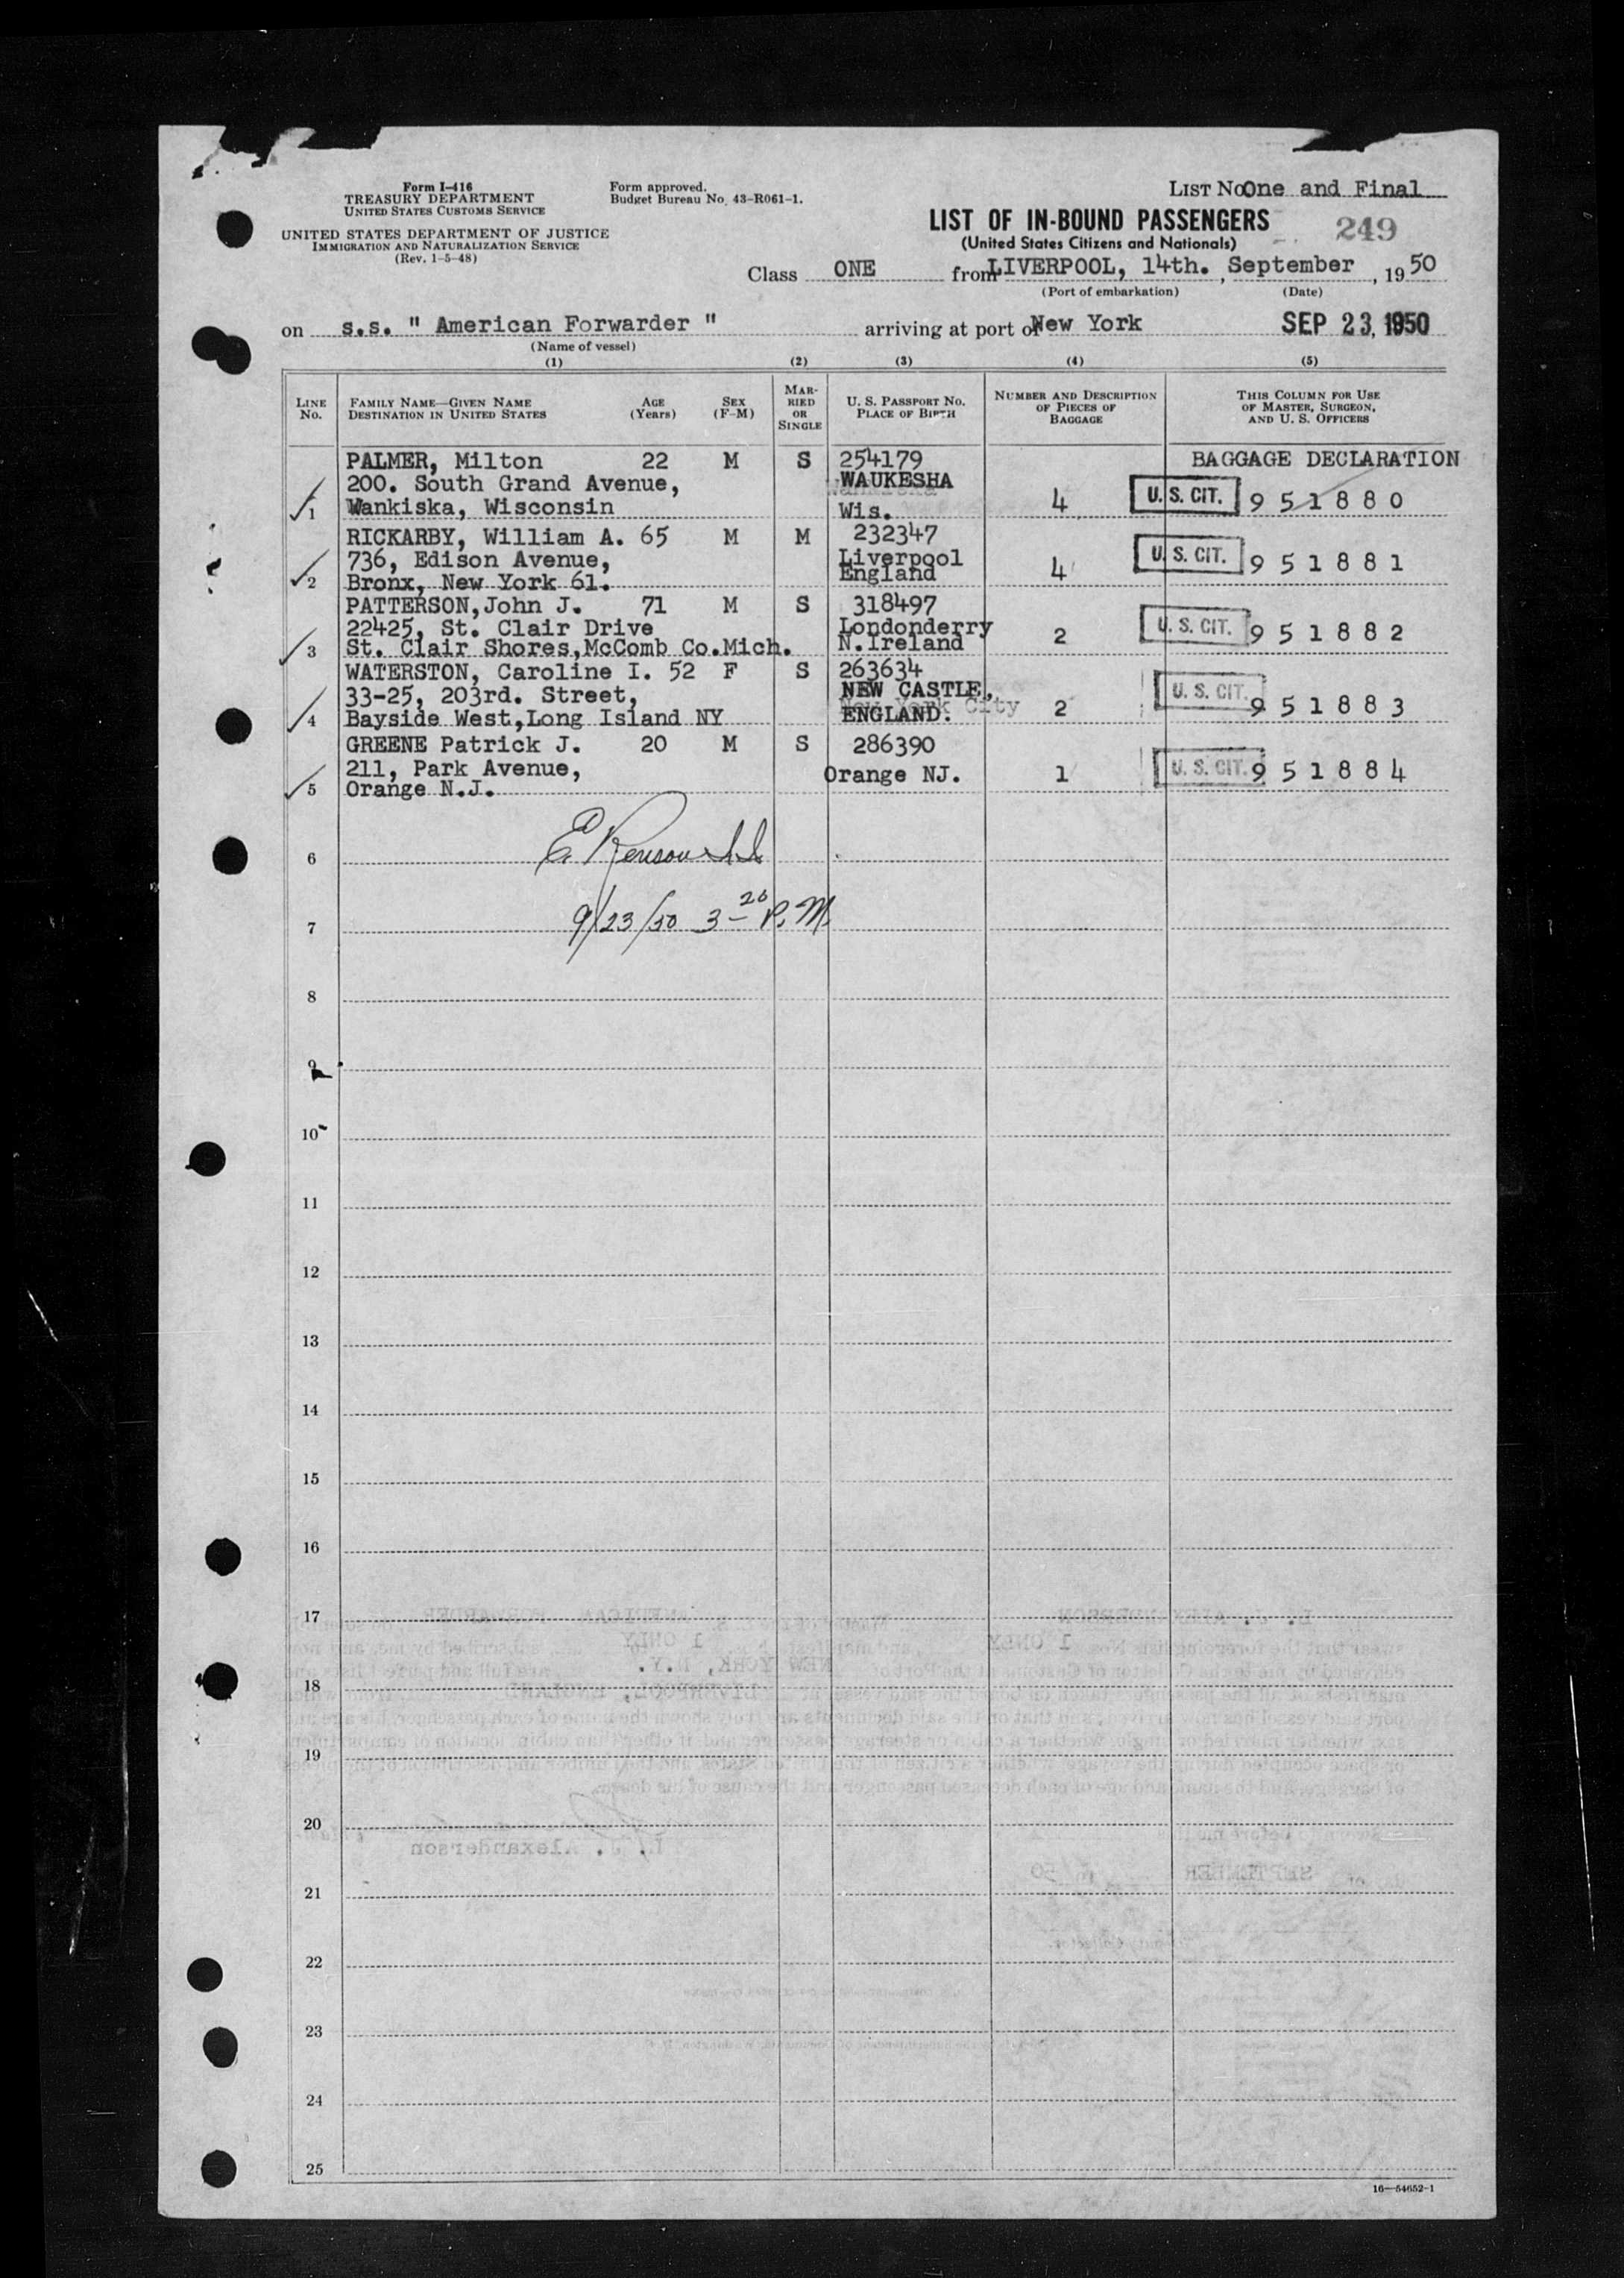 Form I-416
TREASURY DEPARTMENT
UNITED STATES CUSTOMS SERVICE
UNITED STATES DEPARTMENT OF JUSTICE
IMMIGRATION AND NATURALIZATION SERVICE
(Rev. 1-5-48)
Form approved.
Budget Bureau No. 43-R061-1.
LIST No. One and Final
LIST OF IN-BOUND PASSENGERS
249
(United States Citizens and Nationals)
Class ONE from LIVERPOOL, 14th. September, 1950
(Port of embarkation) (Date)
on s.s. " American Forwarder " arriving at port of New York SEP 23, 1950
(Name of vessel)
(1) (2) (3) (4) (5)
LINE No. FAMILY NAME—GIVEN NAME DESTINATION IN UNITED STATES AGE (Years) SEX (F-M) MARRIED OR SINGLE U. S. PASSPORT No. PLACE OF BIRTH NUMBER AND DESCRIPTION OF PIECES OF BAGGAGE THIS COLUMN FOR USE OF MASTER, SURGEON, AND U. S. OFFICERS
PALMER, Milton 22 M S 254179 BAGGAGE DECLARATION
200. South Grand Avenue, WAUKESHA
1 Wankiska, Wisconsin Wis. 4 U.S. CIT. 951880
RICKARBY, William A. 65 M M 232347
736, Edison Avenue, Liverpool
2 Bronx, New York 61. England 4 U.S. CIT. 951881
PATTERSON,John J. 71 M S 318497
22425, St. Clair Drive Londonderry
3 St. Clair Shores,McComb Co.Mich. N.Ireland 2 U.S. CIT. 951882
WATERSTON, Caroline I. 52 F S 263634
33-25, 203rd. Street, NEW CASTLE, New York City
4 Bayside West,Long Island NY ENGLAND. 2 U.S. CIT. 951883
GREENE Patrick J. 20 M S 286390
211, Park Avenue, Orange NJ. 1 U.S. CIT. 951884
5 Orange N.J.
6
9/23/50 3-20 P.M.
7
8
9
10
11
12
13
14
15
16
17
18
19
20
21
22
23
24
25
16—54652-1